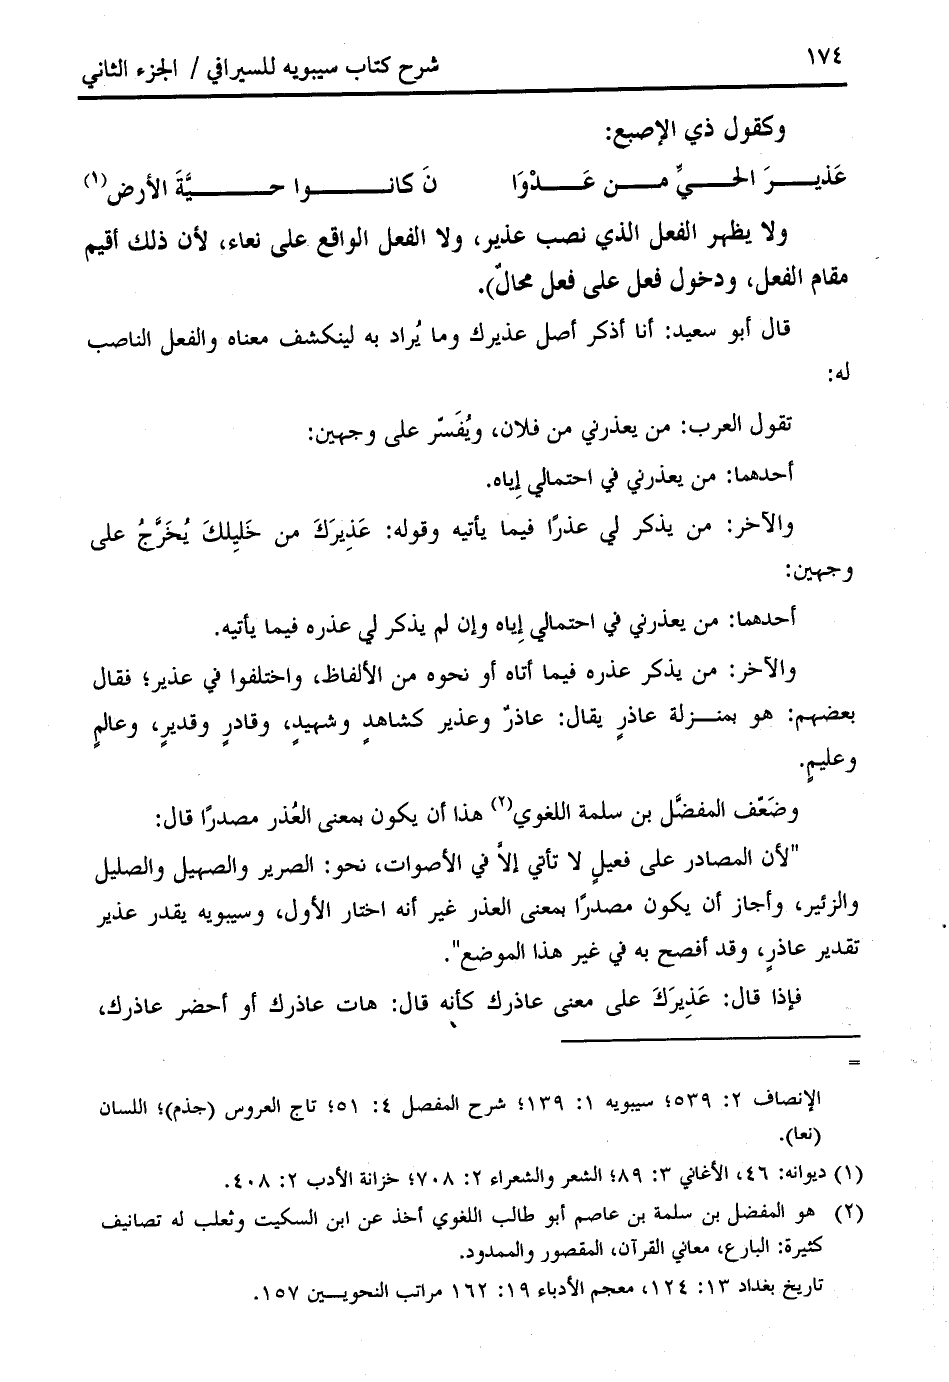 ١٧٤
شرح كتاب سيبويه للسيرافي / الجزء الثاني
وكقول ذي الإصبع:
عَذيـــرَ الحـــيِّ مـــن عَـــدْوَا نَ كانـــــوا حـــــيَّةَ الأرض(١)
ولا يظهر الفعل الذي نصب عذير، ولا الفعل الواقع على نعاء، لأن ذلك أقيم
مقام الفعل، ودخول فعل على فعل محالٌ).
قال أبو سعيد: أنا أذكر أصل عذيرك وما يُراد به لينكشف معناه والفعل الناصب
له:
تقول العرب: من يعذرني من فلان، ويُفَسّر على وجهين:
أحدهما: من يعذرني في احتمالي إياه.
والآخر: من يذكر لي عذرًا فيما يأتيه وقوله: عَذِيرَكَ من خَلِيلكَ يُخَرَّجُ على
وجهين:
أحدهما: من يعذرني في احتمالي إياه وإن لم يذكر لي عذره فيما يأتيه.
والآخر: من يذكر عذره فيما أتاه أو نحوه من الألفاظ، واختلفوا في عذير؛ فقال
بعضهم: هو بمنـــزلة عاذرٍ يقال: عاذرٌ وعذير كشاهدٍ وشهيدٍ، وقادرٍ وقديرٍ، وعالمٍ
وعليمٍ.
وضَعّف المفضَّل بن سلمة اللغوي(٢) هذا أن يكون بمعنى العُذر مصدرًا قال:
"لأن المصادر على فعيلٍ لا تأتي إلاَّ في الأصوات، نحو: الصرير والصهيل والصليل
والزئير، وأجاز أن يكون مصدرًا بمعنى العذر غير أنه اختار الأول، وسيبويه يقدر عذير
تقدير عاذرٍ، وقد أفصح به في غير هذا الموضع".
فإذا قال: عَذِيرَكَ على معنى عاذرك كأنه قال: هات عاذرك أو أحضر عاذرك،
=
الإنصاف ٢: ٥٣٩؛ سيبويه ١: ١٣٩؛ شرح المفصل ٤: ٥١؛ تاج العروس (جذم)؛ اللسان
(نعا).
(١) ديوانه: ٤٦، الأغاني ٣: ٨٩؛ الشعر والشعراء ٢: ٧٠٨؛ خزانة الأدب ٢: ٤٠٨.
(٢) هو المفضل بن سلمة بن عاصم أبو طالب اللغوي أخذ عن ابن السكيت وثعلب له تصانيف
كثيرة: البارع، معاني القرآن، المقصور والممدود.
تاريخ بغداد ١٣: ١٢٤، معجم الأدباء ١٩: ١٦٢ مراتب النحويـــين ١٥٧.